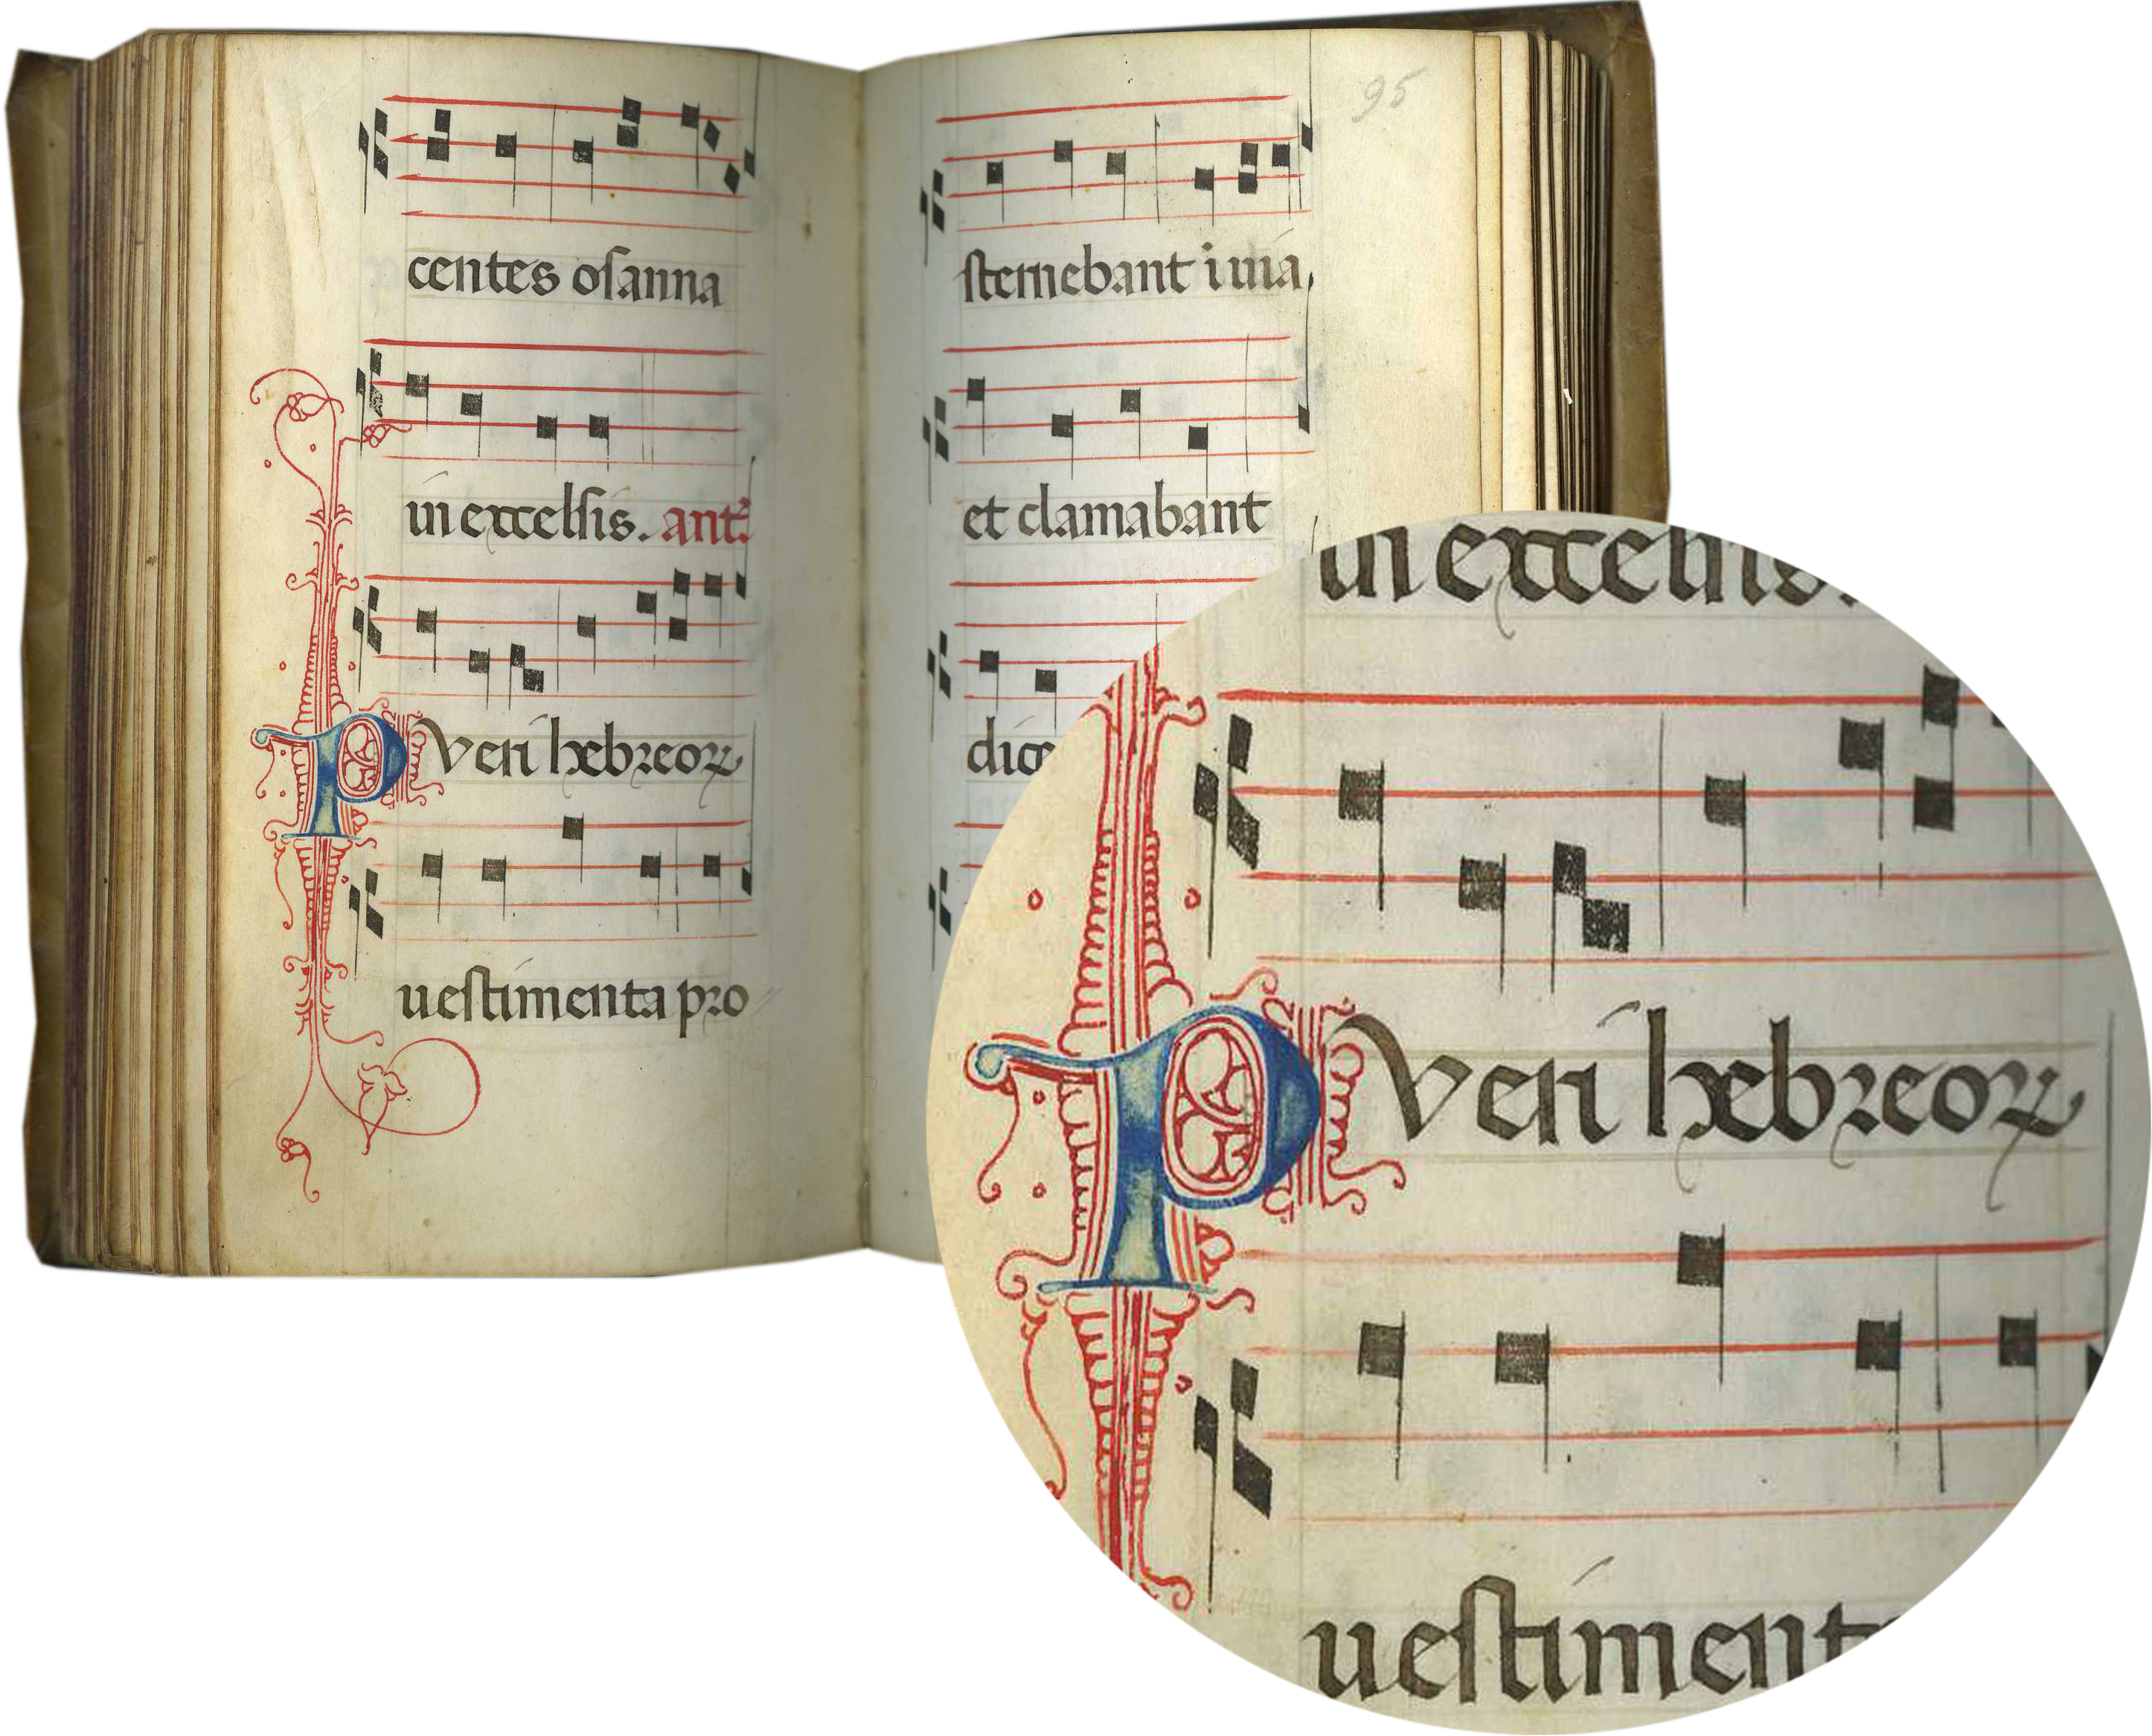 centes oſanna
in excelſis. ant̃.
PVeri hebreoꝝ
ueſtimenta pro
95
ſternebant i uia,
et clamabant
dice
in excelſis.
PVeri hebreoꝝ
ueſtiment